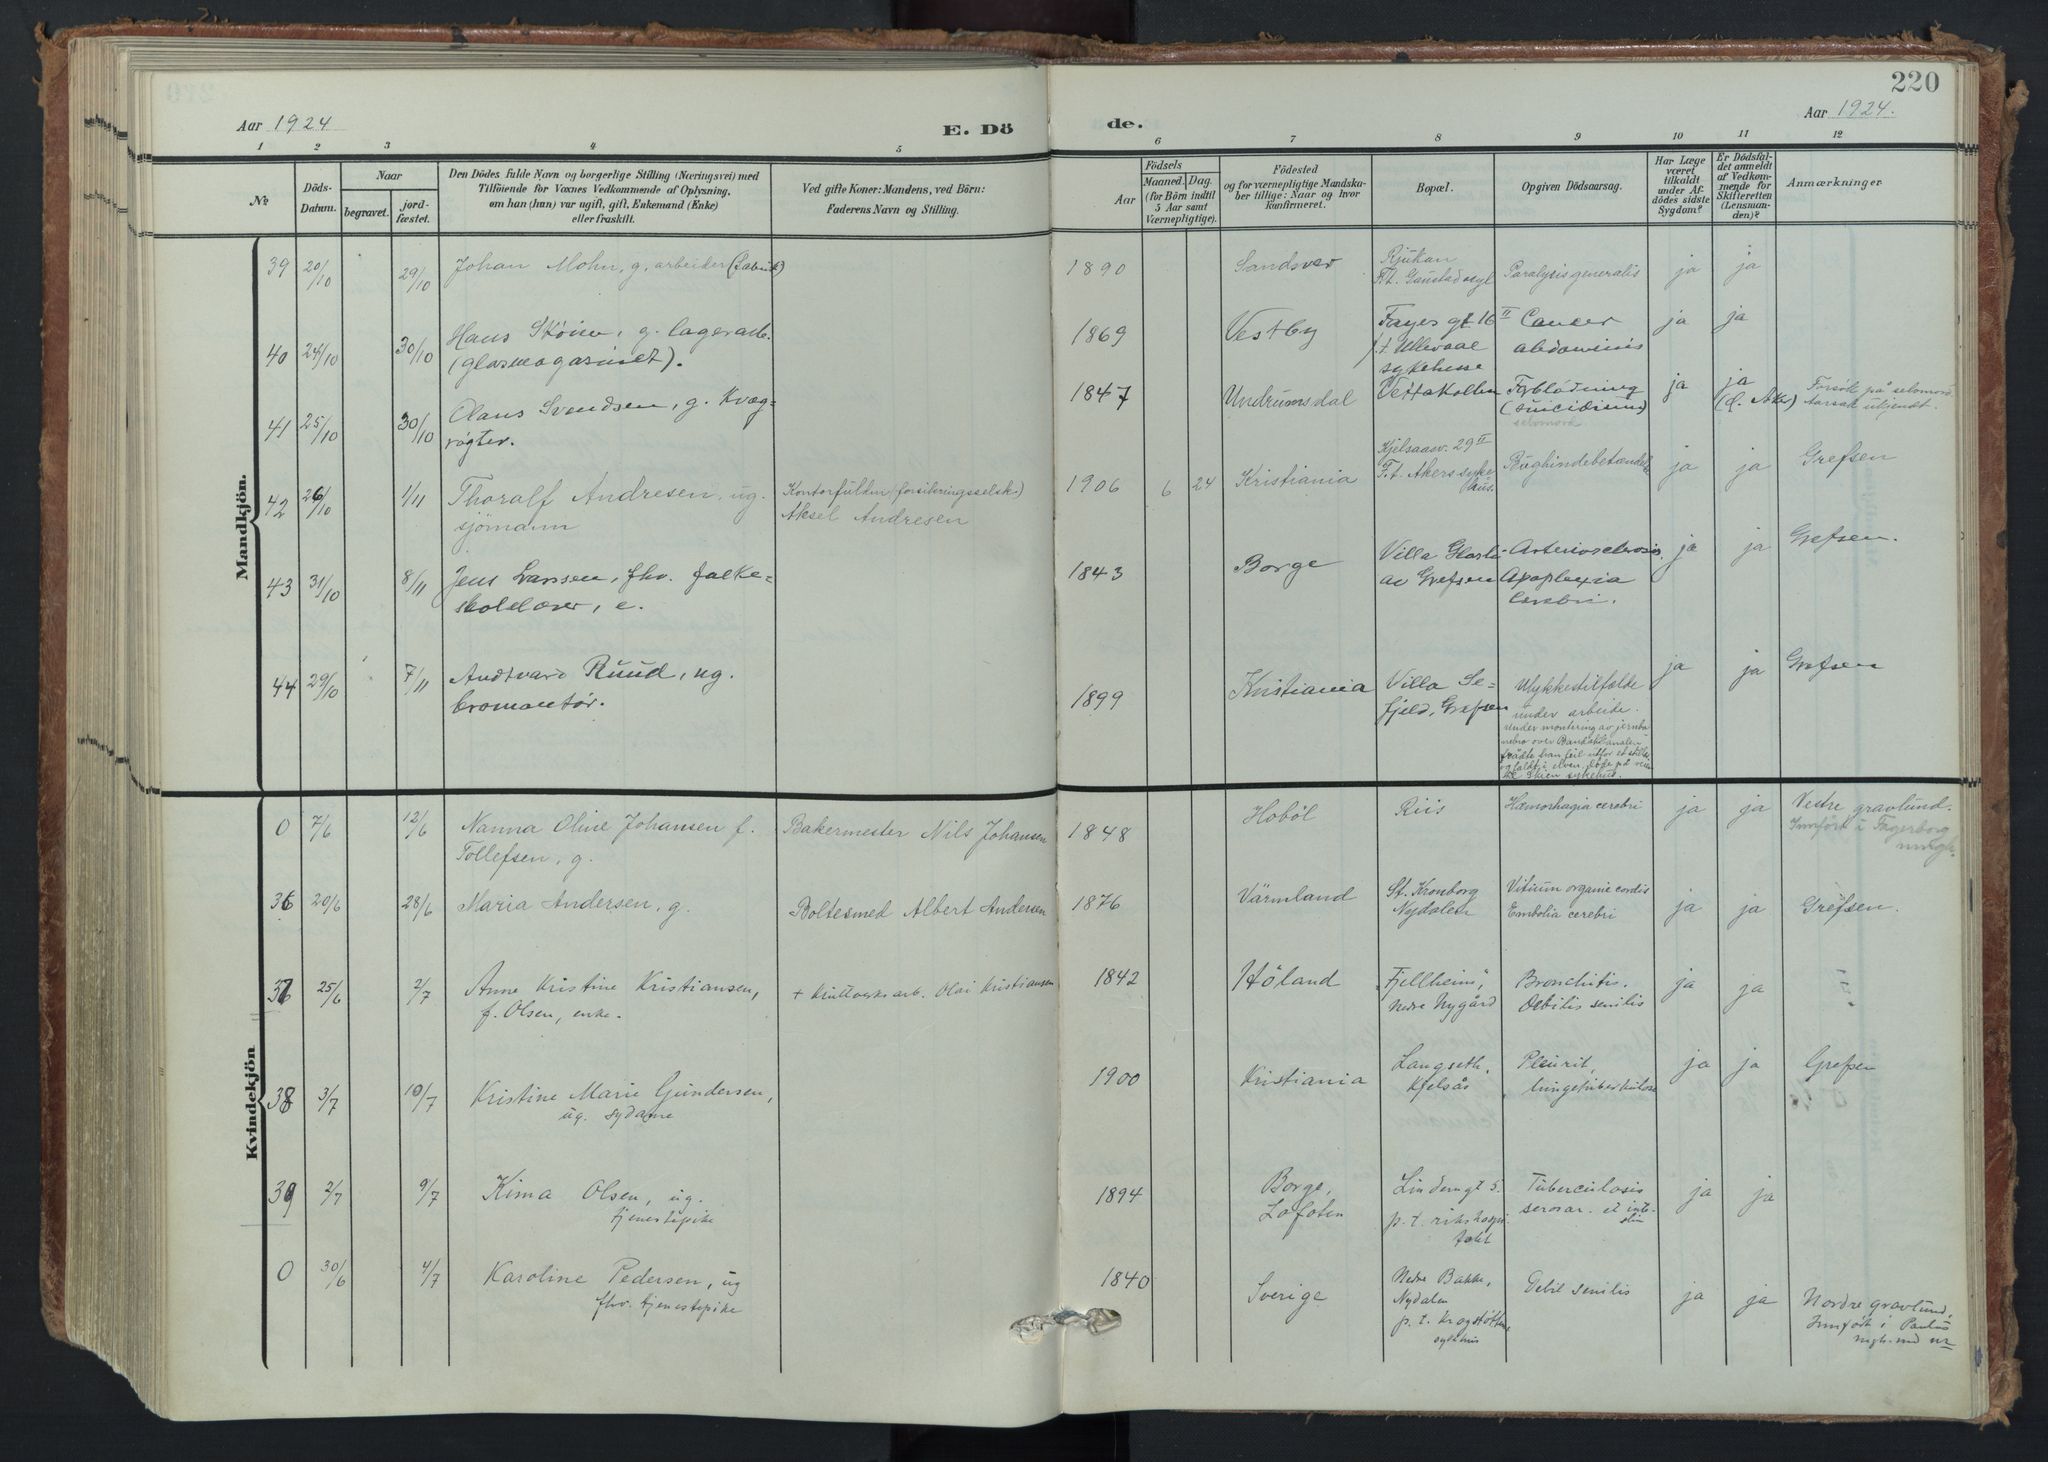 220
Aar 1924
E. Dö
de.
Aar 1924.
1 2 3 4 5 6 7 8 9 10 11 12
№
Döds-
Datum.
Naar
begravet.
jord-
fæstet.
Den Dödes fulde Navn og borgerlige Stilling (Næringsvei) med
Tilföiende for Voxnes Vedkommende af Oplysning,
om han (hun) var ugift, gift, Enkemand (Enke)
eller fraskilt.
Ved gifte Koner: Mandens, ved Börn:
Faderens Navn og Stilling.
Födsels
Aar
Maaned.
Dag.
(for Börn indtil
5 Aar samt
Værnepligtige).
Födested
og for værnepligtige Mandska-
ber tillige: Naar og hvor
konfirmeret.
Bopæl.
Opgiven Dödsaarsag.
Har Læge
været
tilkaldt
under Af-
dödes sidste
Sygdom?
Er Dödsfal-
det anmeldt
af Vedkom-
mende for
Skifteretten
(Lensman-
den)?
Anmærkninger
Mandkjön.
39 20/10 29/10 Johan Mohn, g. arbeider (Fabrik) 1890 Sandsver Rjukan
F.t. Gaustadasyl Paralysis generalis ja ja
40 24/10 30/10 Hans Skøien, g. lagerarb.
(glasmagasinet). 1869 Vestby Fayes gt 16 II
f.t Ullevaal
sykehusse Cancer
abdominis ja ja
41 25/10 30/10 Claus Svendsen, g. Kvæg-
røgter. 1847 Undrumsdal Vettakollen Forblødning
(suicidium)
selvmord ja ja
(d. Aker) Forsøk på selvmord.
Aarsak ukjendt.
42 26/10 1/11 Thoralf Andresen, ug.
sjömann Kontorfuldm (forsikringsselsk.)
Aksel Andresen 1906 6 24 Kristiania Kjelsaasv. 29 II
F.t. Akers syke
hus. Bughindebetændelse ja ja Grefsen
43 31/10 8/11 Jens Larssen, fhv. folke-
skolelærer, e. 1843 Borge Villa
av Grefsen Arteriosclerosis
Apoplexia
cerebri. ja ja Grefsen.
44 29/10 7/11 Ruud, ug.
bromontør. 1899 Kristiania Villa Se-
fjeld, Grefsen Ulykkestilfælde
under arbeide.
under montering av jernba
nebro over Bandakkanalen
trådte han feil utfor et stillas
og faldt i elven, døde på veien
til Skien sykehus. ja ja Grefsen
Kvindekjön
0 7/6 12/6 Nanna Oline Johansen f.
Tollefsen, g. Bakermester Nils Johansen 1848 Hoböl Riis Hæmorhagia cerebri ja ja Vestre gravlund.
Innført i Fagerborg
36 20/6 28/6 Maria Andersen, g. Boltesmed Albert Andersen 1876 Värmland St. Kronborg
Nydalen Vitium organic cordis
Embolia cerebri ja ja Grefsen.
37 25/6 2/7 Anne Kristine Kristiansen,
f. Olsen, enke. + Kruttverksarb. Olai Kristiansen 1842 Höland "Fjellheim",
Nedre Nygård Bronchitis.
Debilis senilis ja ja
38 3/7 10/7 Kristine Marie Gundersen,
ug. sydame 1900 Kristiania Langseth.
Kjelsås Pleurit,
lungetuberkulose ja ja Grefsen
39 2/7 9/7 Kima Olsen, ug.
tjenestepike 1894 Borge,
Lofoten Lindemgt 5.
p.t. rikshospi-
talet Tuberculosis
serosar. et inte-
stin ja ja
0 30/6 4/7 Karoline Pedersen, ug
fhv. tjenestepike 1840 Sverige Nedre Bakke,
Nydalen
p.t. Krogstötten
sykehus Debil senilis ja ja Nordre gravlund,
Innfört i Paulus